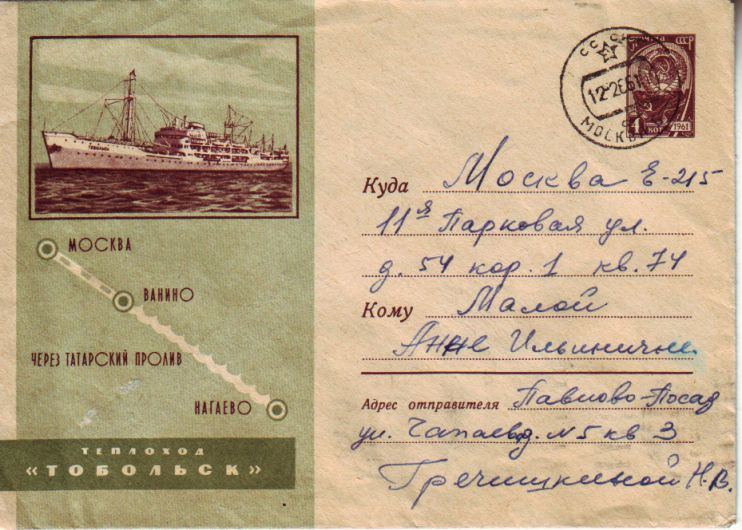 МОСКВА
ВАНИНО
ЧЕРЕЗ ТАТАРСКИЙ ПРОЛИВ
НАГАЕВО
ТЕПЛОХОД
«ТОБОЛЬСК»
МОСКВА
1961
Куда Москва Е-215
11я Парковая ул.
д. 54 кор. 1 кв. 74
Кому Малой
Анне Ильиничне.
Адрес отправителя Павлово-Посад
ул. Чапаева д. №5 кв 3
Гречишкиной Н.В.